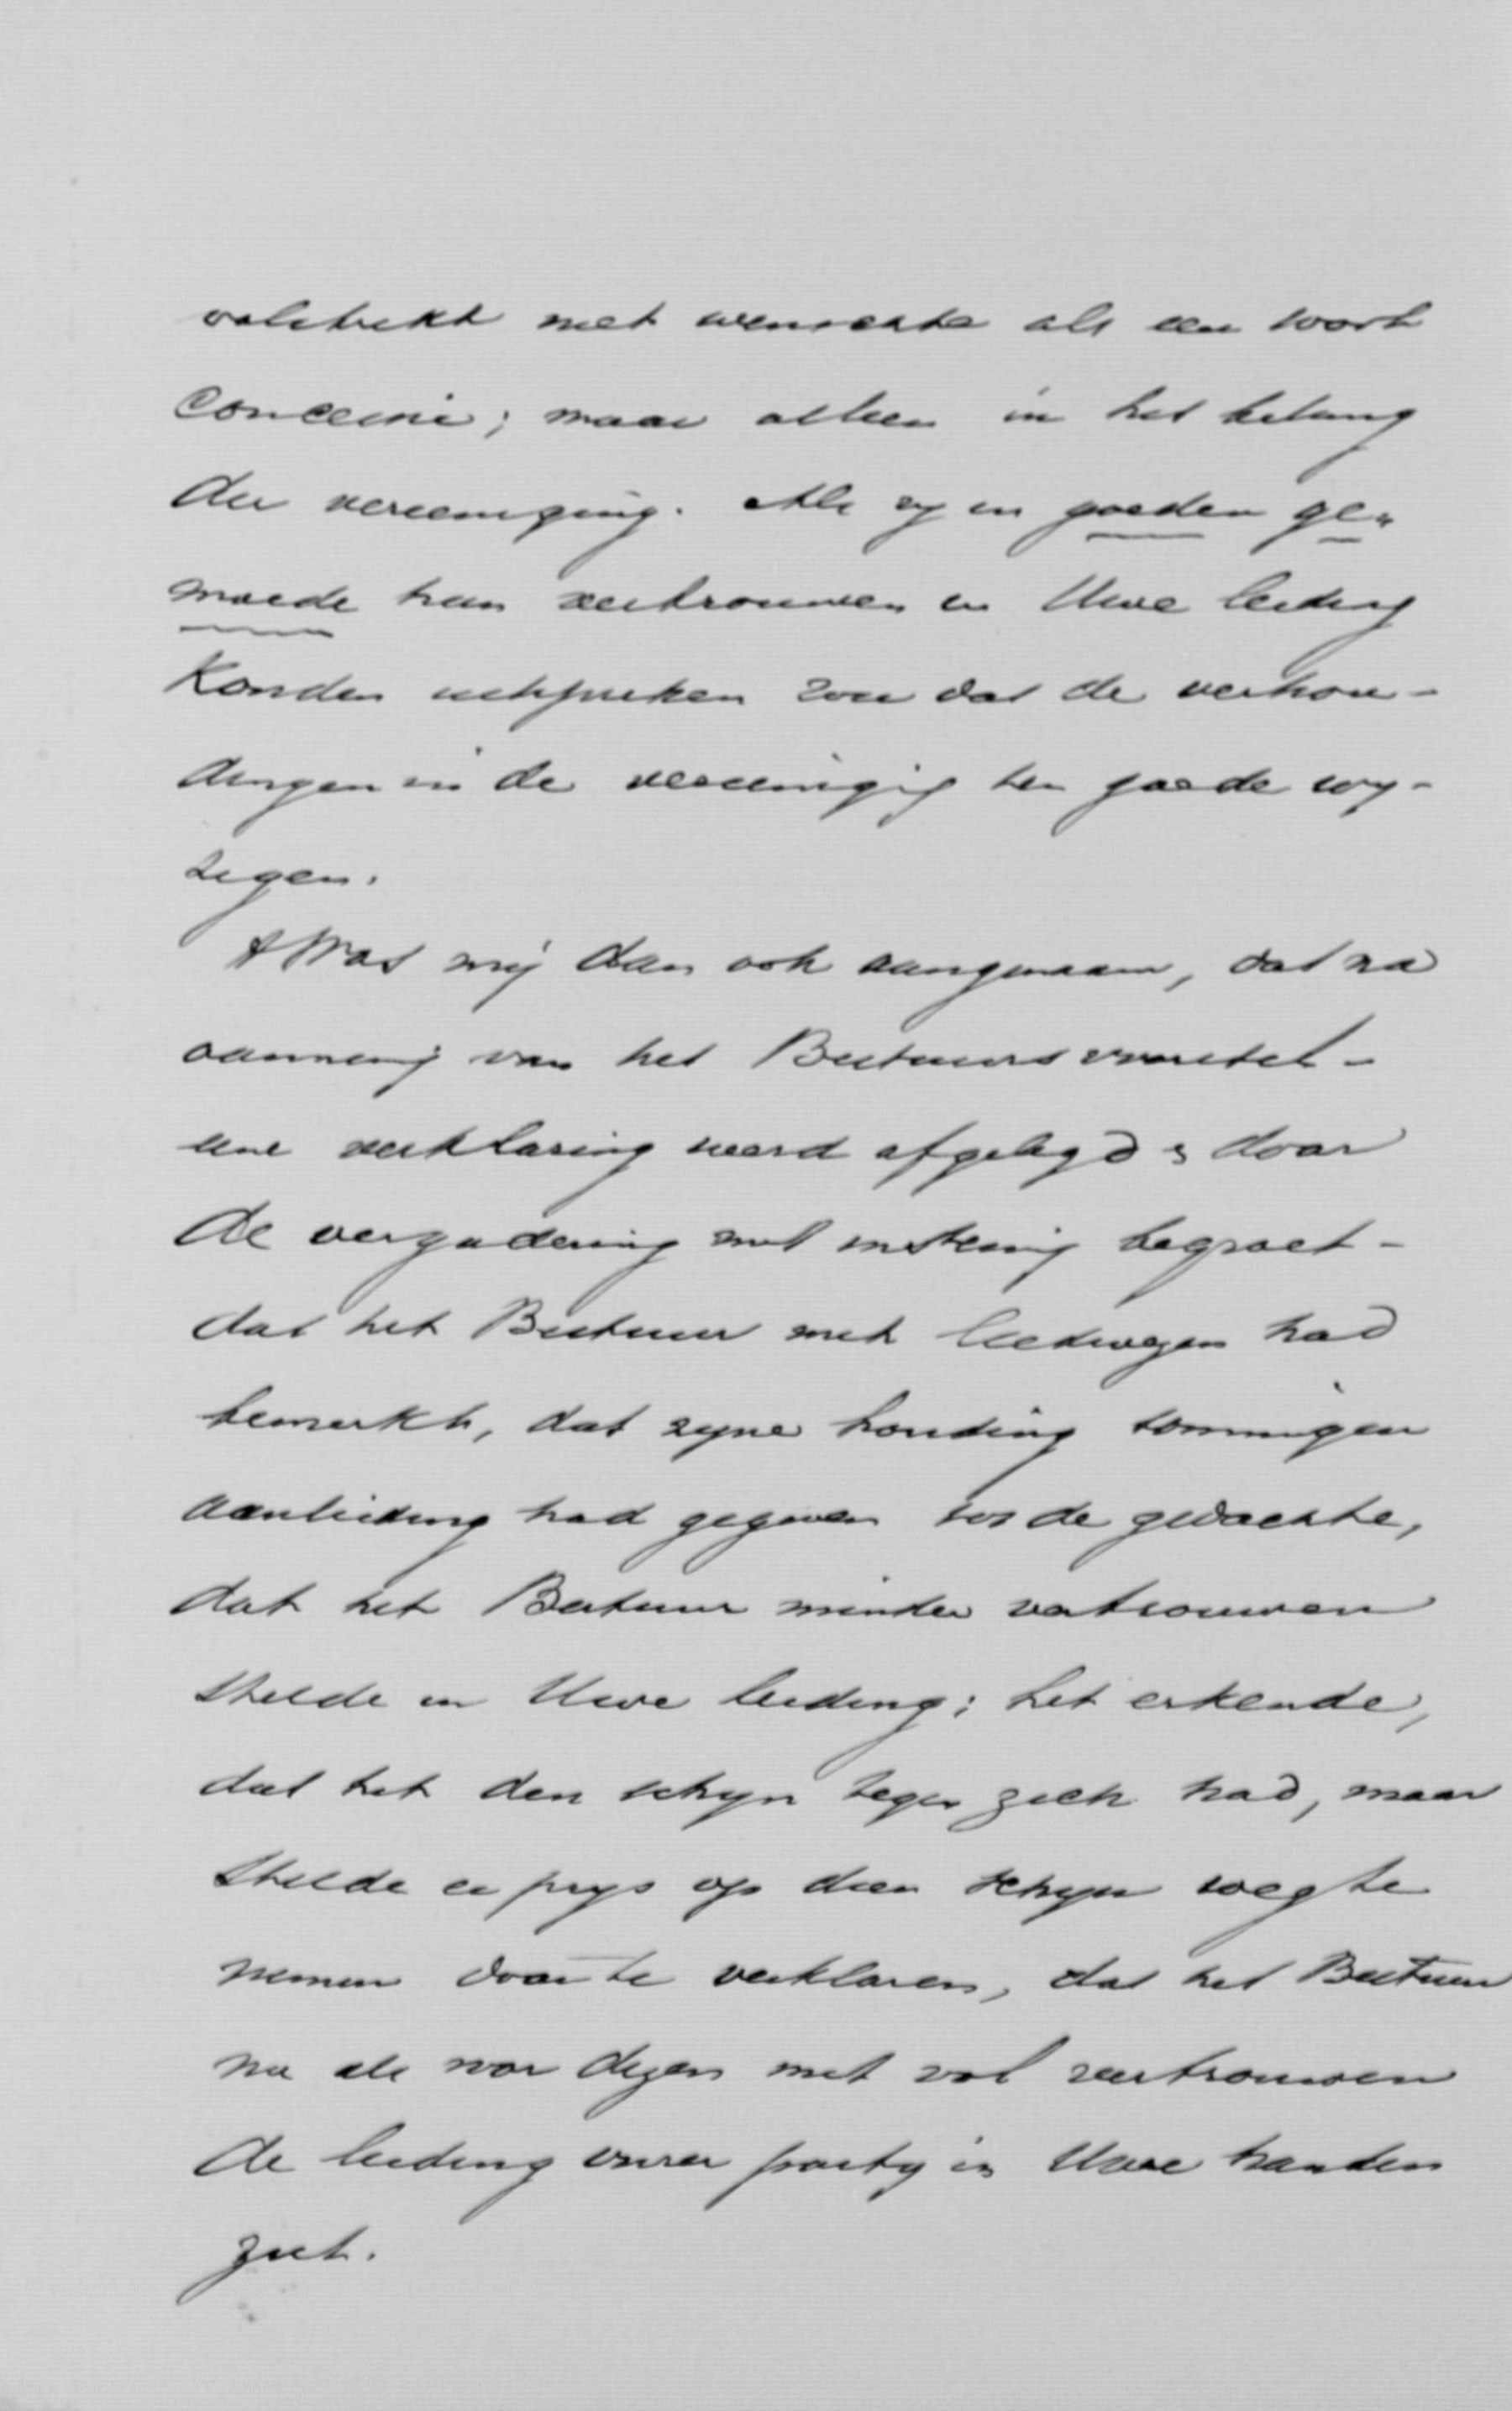 volstrekt niet wenschte als een soort
Concessie; maar alleen in het belang
der vereeniging. Als zy in goeden ge„
moede hun vertrouwen in Uwe leiding
konden uitspreken zou dat de verhou-
dingen in de vereeniging ten goede wy-
zigen.
't Was mij dan ook aangenaam, dat na
aanneming van het Bestuursvoorstel -
eene verklaring werd afgelegd & door
de vergadering met instemming begroet -
dat het Bestuur met leedwezen had
bemerkt, dat zyne houding sommigen
aanleiding had gegeven tot de gedachte,
dat het Bestuur minder vertrouwen
stelde in Uwe leiding; het erkende,
dat het den schyn tegen zich had, maar
stelde er prys op dien schyn weg te
nemen door te verklaren, dat het Bestuur
nu als voor dezen met vol vertrouwen
de leiding onzer party in Uwe handen
ziet.